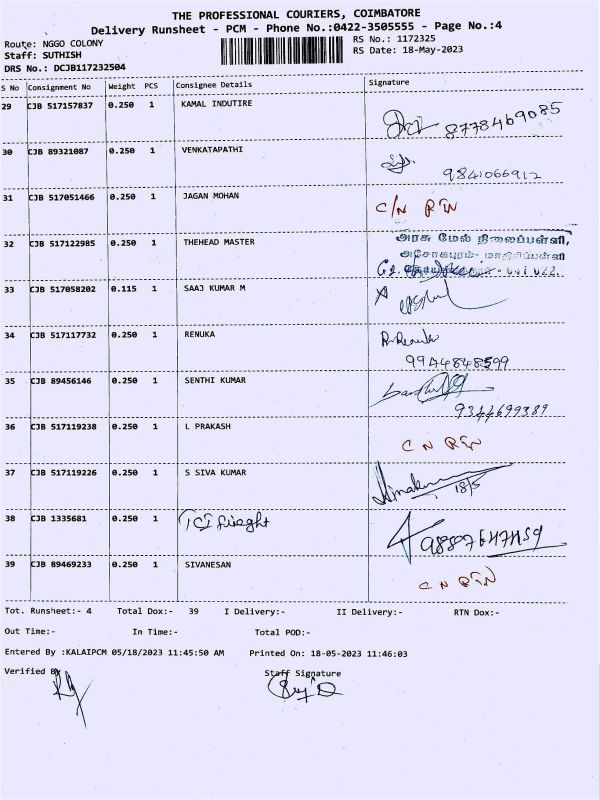 THE PROFESSIONAL COURIERS, COIMBATORE
Delivery Runsheet - PCM - Phone No.:0422-3505555 - Page No.:4
Route: NGGO COLONY
RS No.: 1172325
Staff: SUTHISH
RS Date: 18-May-2023
DRS No.: DCJB117232504
S No Consignment No Weight PCS Consignee Details Signature
29 CJB 517157837 0.250 1 KAMAL INDUTIRE
8778469085
30 CJB 89321087 0.250 1 VENKATAPATHI
9841066912
31 CJB 517051466 0.250 1 JAGAN MOHAN
C/N RTN
32 CJB 517122985 0.250 1 THEHEAD MASTER
அரசு மேல் நிலைப்பள்ளி,
அசோகபுரம்
33 CJB 517058202 0.115 1 SAAJ KUMAR M
34 CJB 517117732 0.250 1 RENUKA
R. Renuka
9944848599
35 CJB 89456146 0.250 1 SENTHI KUMAR
9344699389
36 CJB 517119238 0.250 1 L PRAKASH
C N RTN
37 CJB 517119226 0.250 1 S SIVA KUMAR
18/5
38 CJB 1335681 0.250 1 TCI frieght
39 CJB 89469233 0.250 1 SIVANESAN
C N RTN
Tot. Runsheet:- 4 Total Dox:- 39 I Delivery:- II Delivery:- RTN Dox:-
Out Time:- In Time:- Total POD:-
Entered By :KALAIPCM 05/18/2023 11:45:50 AM Printed On: 18-05-2023 11:46:03
Verified By Staff Signature